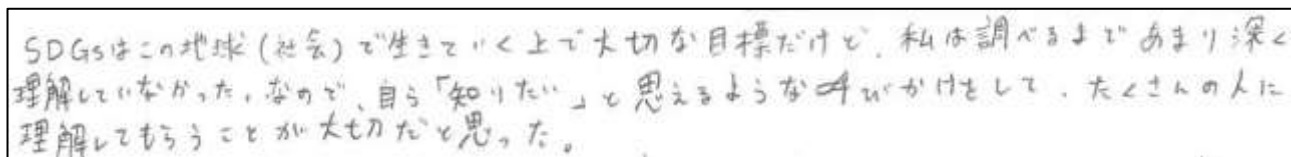 SDGsはこの地球(社会)で生きていく上で大切な目標だけど、私は調べるまであまり深く
理解していなかった。なので、自ら「知りたい」と思えるような呼びかけをして、たくさんの人に
理解してもらうことが大切だと思った。